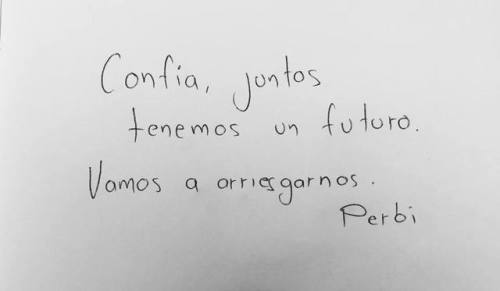 Confia, juntos
tenemos un futuro.
Vamos a arriesgarnos.
Perbi